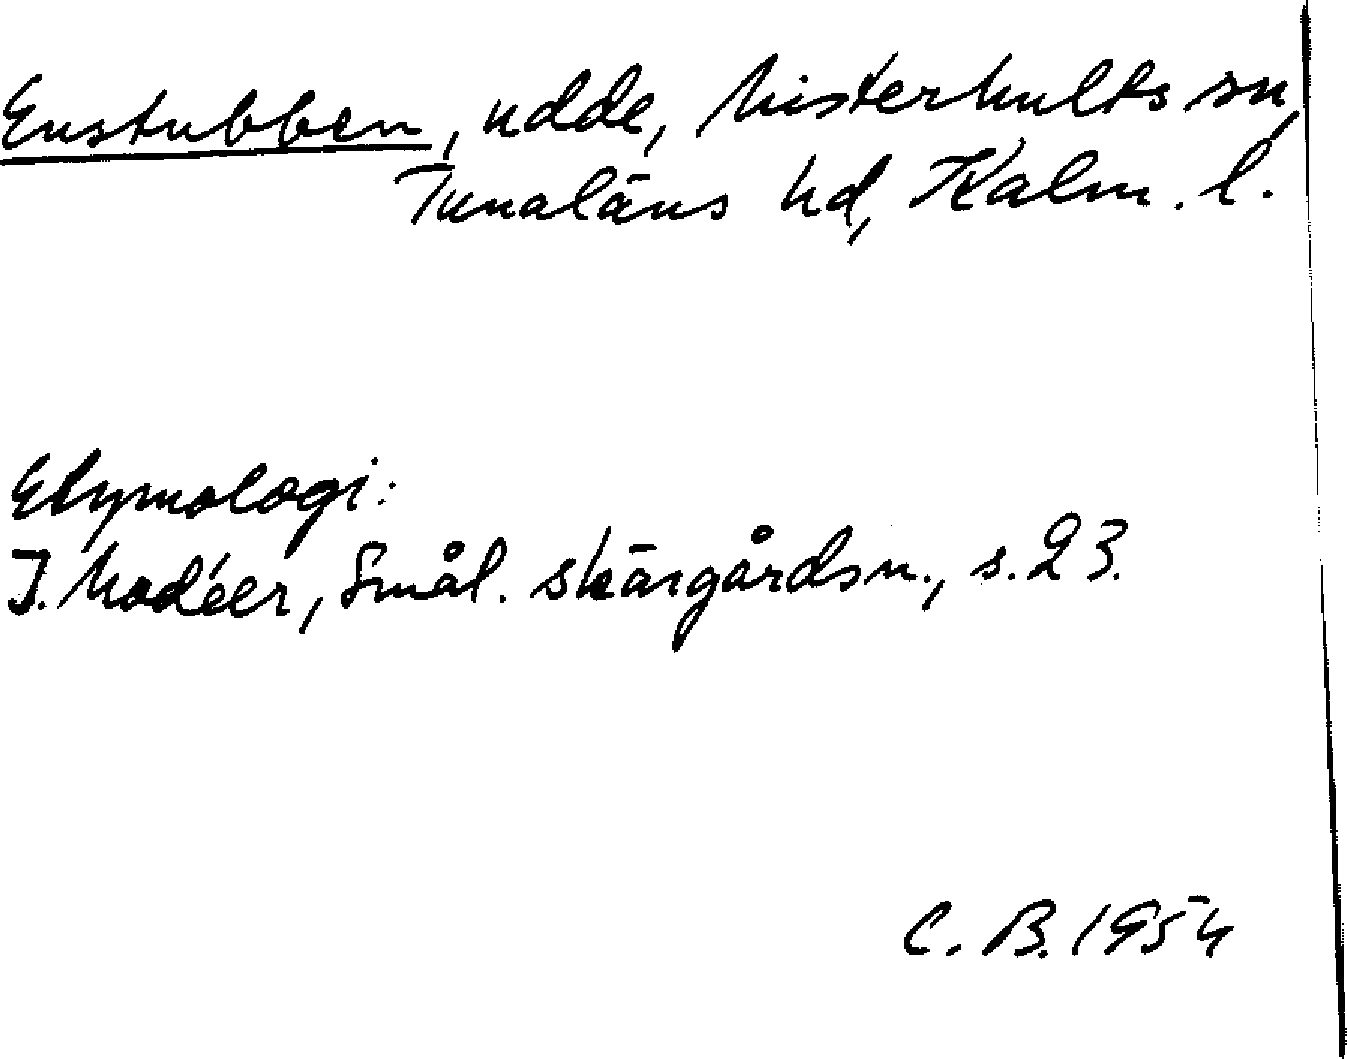 Enstubben, udde, Misterhults sn,
Tunaläns hd, Kalm. l.
Etymologi:
I. Modéer, Smål. skärgårdsn., s. 23.
C. B. 1954